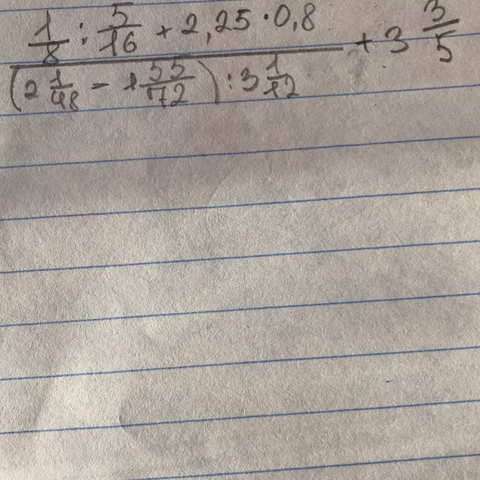 1/8 : 5/16 + 2,25 · 0,8
(2 1/48 - 1 55/72) : 3 1/12
+ 3 3/5